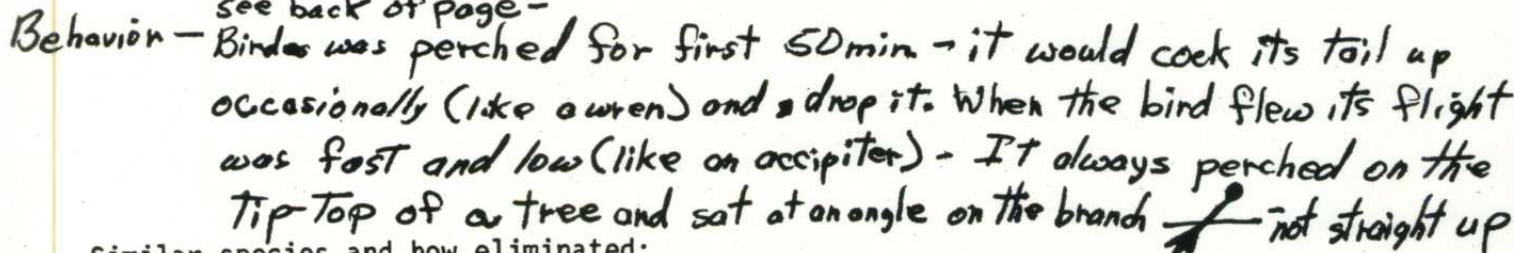 see back of page-
Behavior - Birds was perched for first 50min - it would cock its tail up
occasionally (like a wren) and drop it. When the bird flew its flight
was fast and low (like an accipiter) - It always perched on the
Tip-Top of a tree and sat at an angle on the branch - not straight up
Similar species and how eliminated: